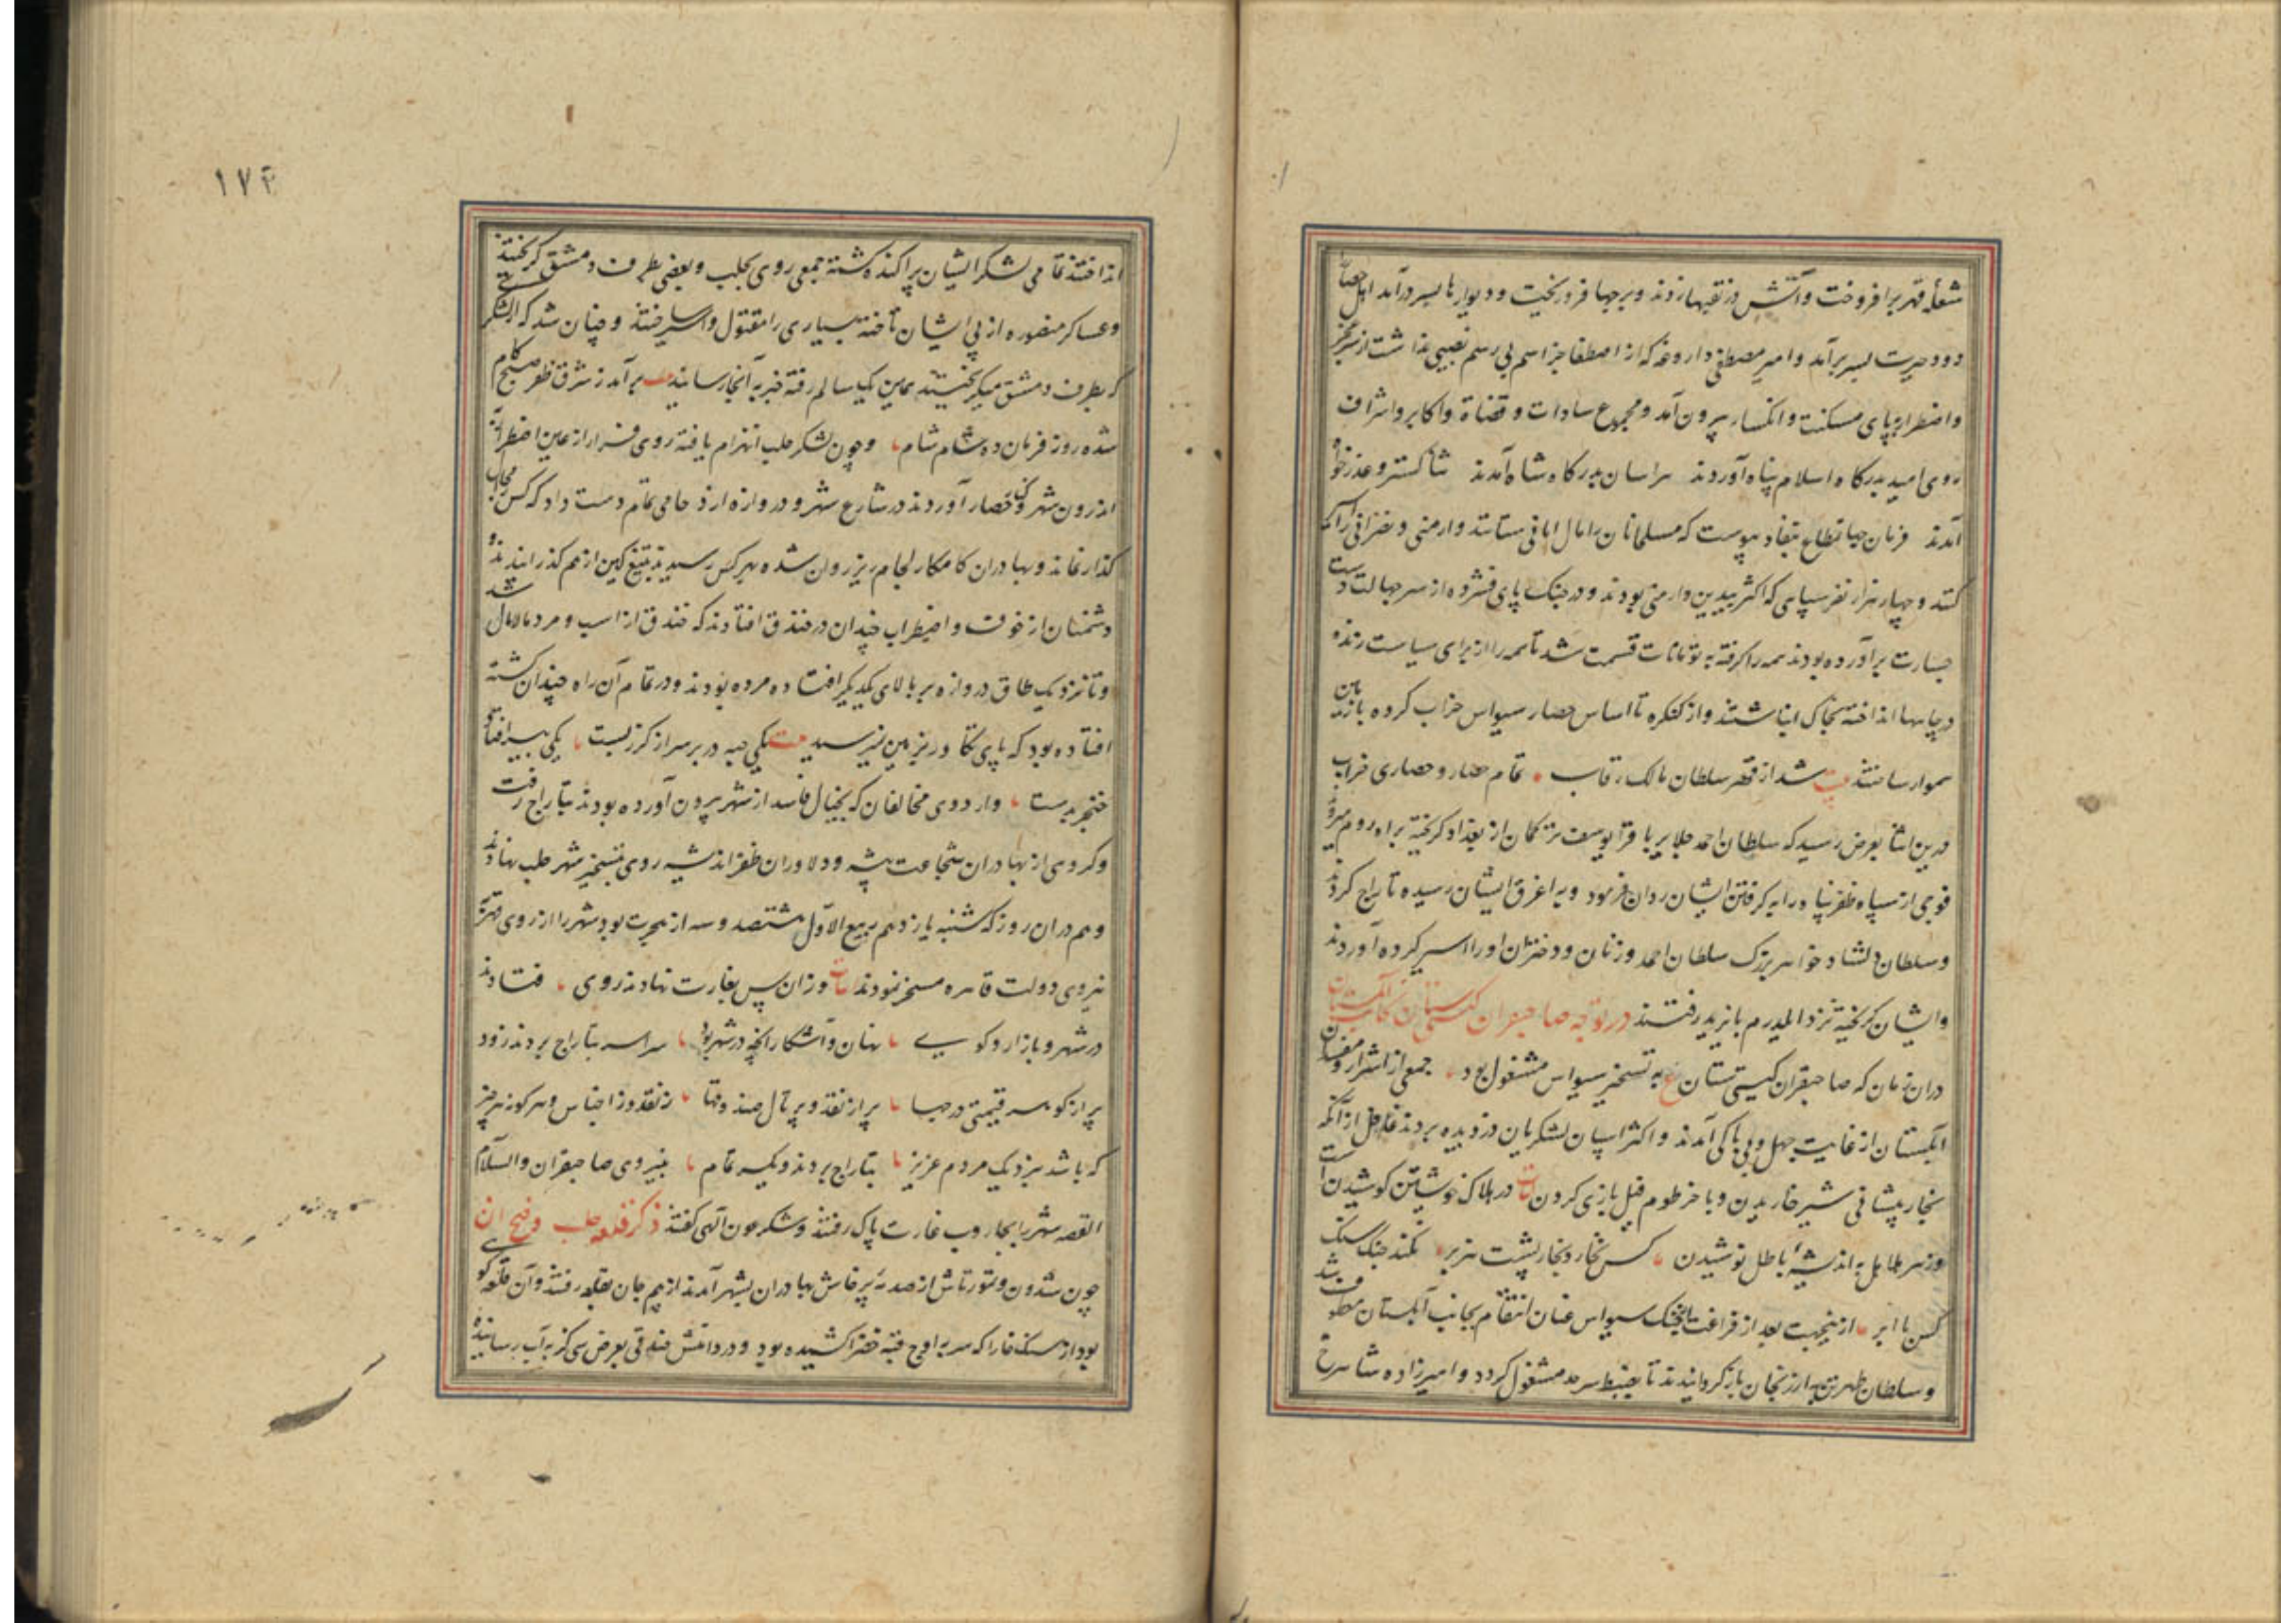 شعلهٔ قهر برافروخت و آتش در نقبها زدند و برجها فرو ریخت و دیوارها بسر درآمد اهل حصار
دود حیرت بسر برآمد و امیر مصطفی داروغه که از اصطفا جز اسم بی رسم نصیبی نداشت از سر عجز
و اضطرار بپای مسکنت و انکسار بیرون آمد و مجموع سادات و قضاة و اکابر و اشراف
روی امید بدرکاه اسلام پناه آوردند هراسان بدرکاه شاه آمدند ثنا کستر و عذر خواه
آمدند فرمان جهانمطاع بنفاذ پیوست که مسلمانان را مال امانی ستانند و ارمنی و نصرانی را
کنند و چهار هزار نفر سپاهی که اکثر بیدین و ارمنی بودند و در جنک پای فشرده از سر جهالت دست
جسارت برآورده بودند همه را کرفته به تومانات قسمت شد تا همه را از برای سیاست زنده
در چاهها انداخته بخاک انباشتند و از کنکره تا اساس حصار سیواس خراب کرده با زمین
هموار ساختند بیت شد از قهر سلطان مالک رقاب تمام حصار و حصاری خراب
درین اثنا بعرض رسید که سلطان احمد جلایر با قرا یوسف ترکمان از بغداد کریخته براه روم میرود
فوجی از سپاه ظفرپناه را به کرفتن ایشان روان فرمود و به اغرق ایشان رسیده تاراج کردند
و سلطان دلشاد خواهر بزرک سلطان احمد و زنان و دختران او را اسیر کرده آوردند
و ایشان کریخته نزد ایلدرم بایزید رفتند در توجه صاحبقران کیتی ستان بجانب ابلستان
دران زمان که صاحبقران کیتی ستان به تسخیر سیواس مشغول بود جمعی از اشرار و مفسدان
ابلستان از غایت جهل و بی باکی آمدند و اکثر اسپان لشکریان دزدیده بردند غافل از آنکه
بخار پیشانی شیر خاریدن و با خرطوم فیل بازی کردن در هلاک خویشتن کوشیدن است
و زهر هلاهل به اندیشهٔ باطل نوشیدن کس نخارد بخار پشت هزبر نکند جنک سنک
کس با ابر ازینجهت بعد از فراغت جنک سیواس عنان انتقام بجانب ابلستان معطوف شد
و سلطان طهرتن به ارزنجان باز کردانیدند تا بضبط سرحد مشغول کردد و امیرزاده شاهرخ
۱۷۴
انداختند تمامی لشکر ایشان پراکنده کشته جمعی روی بحلب و بعضی بطرف دمشق کریختند
و عساکر منصوره از پی ایشان تاخته بسیاری را مقتول و اسیر ساختند و چنان شد که از لشکری
که بطرف دمشق میکریختند همین یک سالم رفته خبر به آنجا رسانید بیت برآمد ز شرق ظفر صبح کام
شده روز فرمان ده شام شام و چون لشکر حلب انهزام یافته روی فرار از عین اضطرار
اندرون شهر و حصار آوردند در شارع شهر و دروازه ازدحامی تمام دست داد که کس مجال
کذار نماند و بهادران کامکار لجام ریز روان شده بهر کس رسیدند بتیغ کین از هم کذرانیدند و
دشمنان از خوف و اضطراب چندان در خندق افتادند که خندق از اسب و مرد مالامال شد
و تا نزدیک طاق دروازه بر بالای یکدیکر افتاده مرده بودند و در تمام آن راه چندان کشته
افتاده بود که پای تکاور بزمین نمیرسید بیت یکی جبه در بر سر از کرز پست یکی بیسر افتاده
خنجر بدست و اردوی مخالفان که بخیال فاسد از شهر بیرون آورده بودند بتاراج رفت
و کروهی از بهادران شجاعت پیشه و دلاوران ظفر اندیشه روی بتسخیر شهر حلب نهادند
و هم دران روز که شنبه یازدهم ربیع الاول هشتصد و سه از هجرت بود شهر را از روی قهر
نیروی دولت قاهره مسخر نمودند ابیات وزان پس بغارت نهادند روی فتادند
در شهر و بازار و کوی نهان و آشکارا آنچه در شهر بود سراسر بتاراج بردند زود
پر از کوهر قیمتی درجها پر از نقد و پر مال صندوقها ز نقد و ز اجناس و هر کونه چیز
که باشد بنزدیک مردم عزیز بتاراج بردند یکسر تمام بنیروی صاحبقران والسلام
القصه شهر را بجاروب غارت پاک رفتند و شکر عون الهی کفتند ذکر قلعه حلب و فتح آن
چون شدون و تمورتاش از صدمهٔ پرخاش بهادران بشهر آمدند از بیم جان بقلعه رفتند و آن قلعه کوهی
بود از سنک خارا که سر به اوج قبه خضرا کشیده بود و در دامنش خندقی بعرض سی کز به آب رسانیده